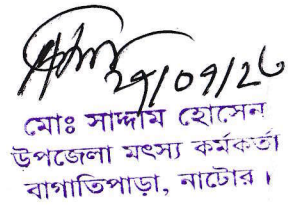 মোঃ সাদ্দাম হোসেন
উপজেলা মৎস্য কর্মকর্তা
বাগাতিপাড়া, নাটোর।